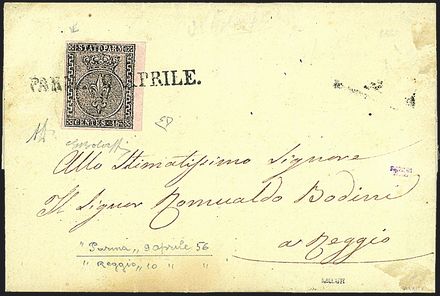 STATI PARM
PAR APRILE.
CENTES. 15
Allo Stimatissimo Signore
Il Signor Romualdo Bodini
a Reggio
"Parma„ 9 aprile 56
"Reggio„ 10 " "